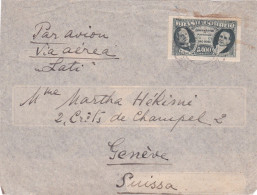 Par avion
Via aérea
"Lati"
Mme Martha Hékimé
2, Crêts de Champel 2
Genève
Suissa